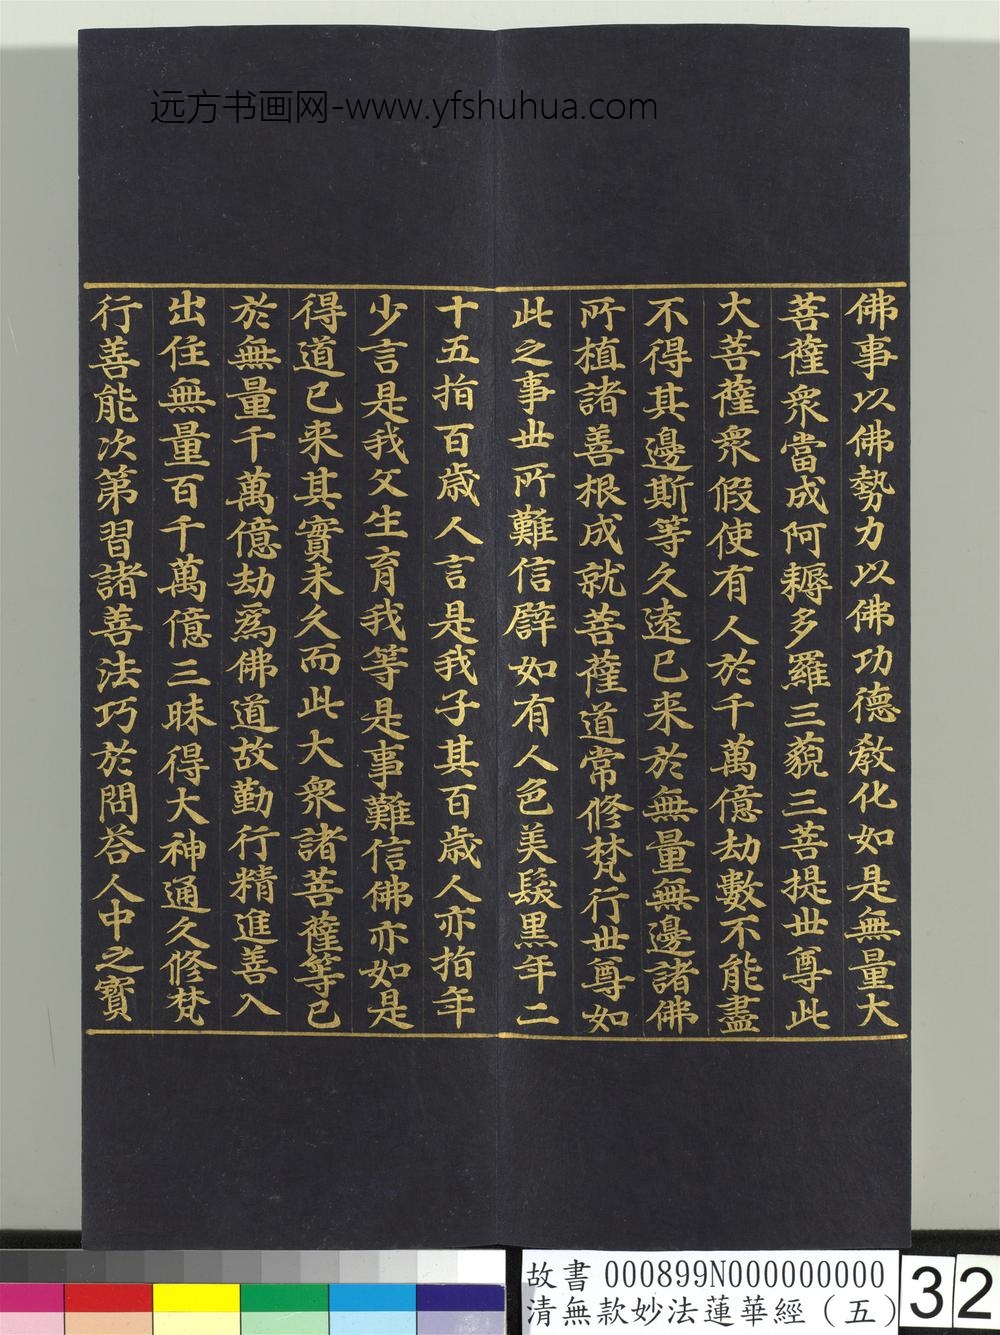 远方书画网-www.yfshuhua.com
佛事以佛勢力以佛功德教化如是無量大
菩薩衆當成阿耨多羅三藐三菩提世尊此
大菩薩衆假使有人於千萬億劫數不能盡
不得其邊斯等久遠已来於無量無邊諸佛
所植諸善根成就菩薩道常修梵行世尊如
此之事世所難信譬如有人色美髮黑年二
十五指百歳人言是我子其百歳人亦指年
少言是我父生育我等是事難信佛亦如是
得道已来其實未久而此大衆諸菩薩等已
於無量千萬億劫爲佛道故勤行精進善入
出住無量百千萬億三昧得大神通久修梵
行善能次第習諸善法巧於問答人中之寶
故書 000899N000000000
清無款妙法蓮華經（五）
32